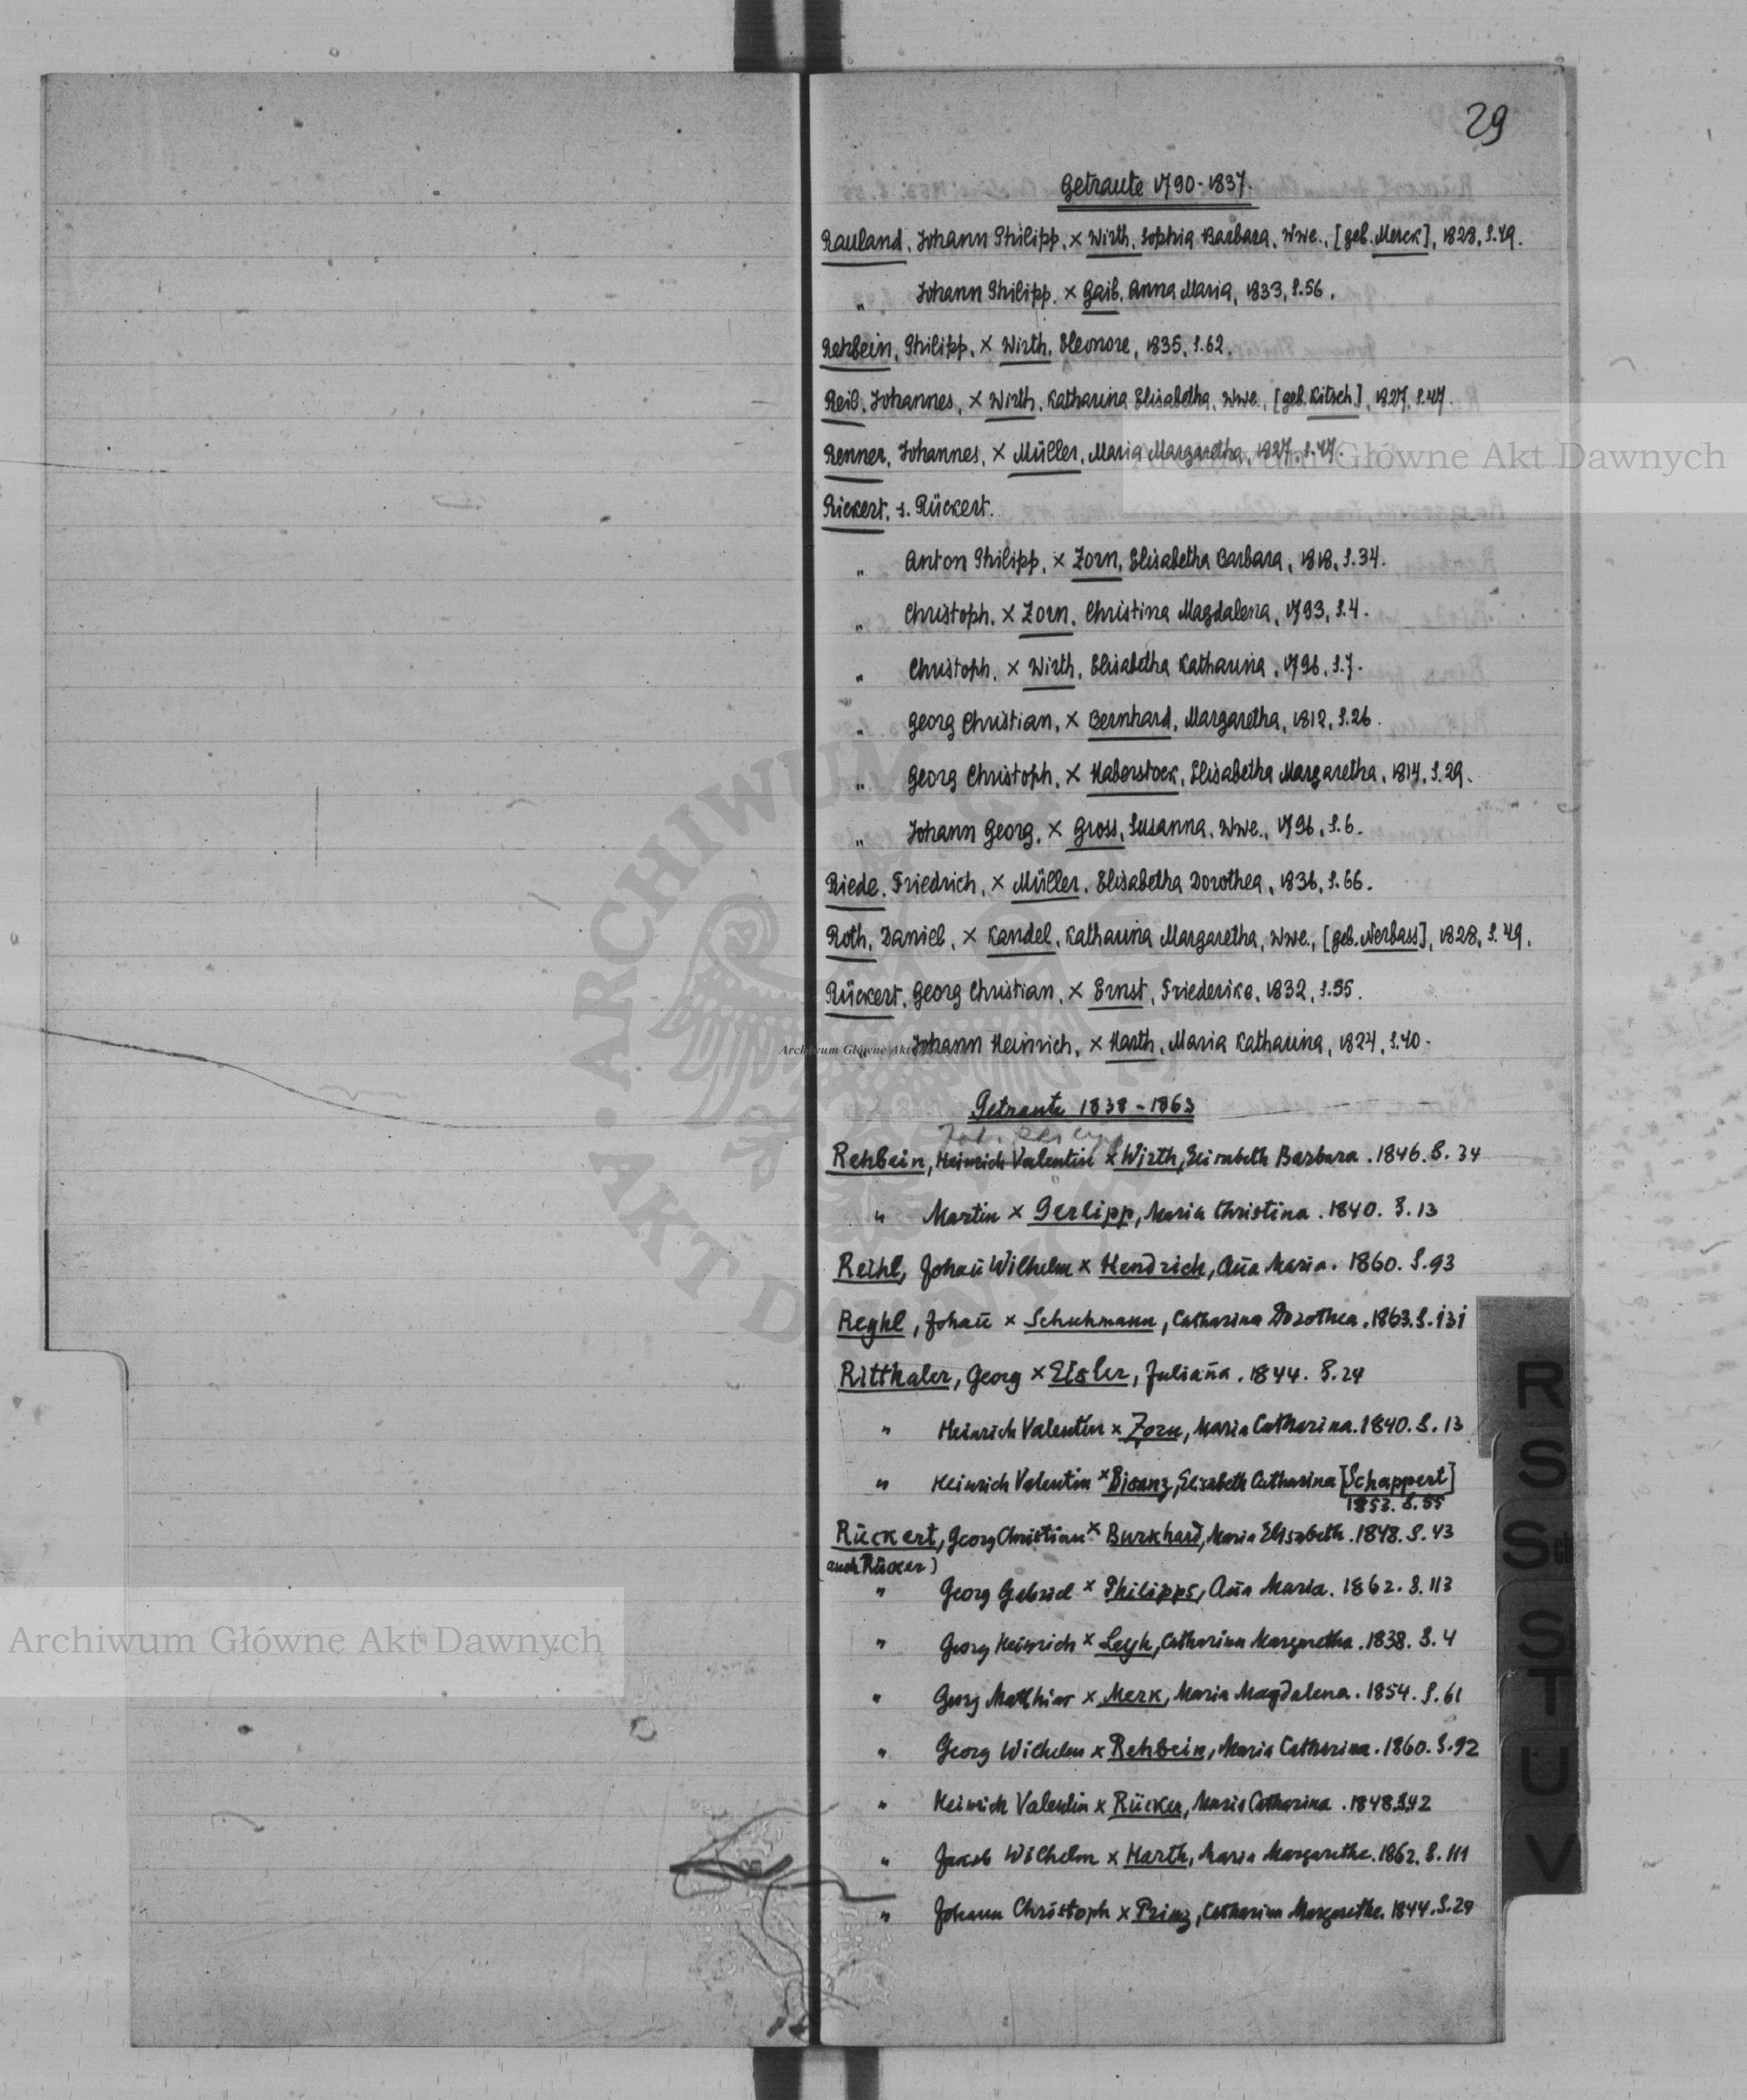 29
Getraute 1790-1837.
Rauland, Johann Philipp, × Wirth, Sophia Barbara, Wwe., [geb. Merck], 1828, S.49.
" Johann Philipp, × Gaib, Anna Maria, 1833, S.56.
Rehbein, Philipp, × Wirth, Eleonore, 1835, S.62.
Reib, Johannes, × Wirth, Katharina Elisabetha, Wwe., [geb. Kitsch], 1827, S.47.
Renner, Johannes, × Müller, Maria Margaretha, 1827, S.47.
Rickert, s. Rückert.
" Anton Philipp, × Zorn, Elisabetha Barbara, 1818, S.34.
" Christoph, × Zorn, Christina Magdalena, 1793, S.4.
" Christoph, × Wirth, Elisabetha Katharina, 1796, S.7.
" Georg Christian, × Bernhard, Margaretha, 1812, S.26.
" Georg Christoph, × Haberstock, Elisabetha Margaretha, 1814, S.29.
" Johann Georg, × Gross, Susanna, Wwe., 1796, S.6.
Riede, Friedrich, × Müller, Elisabetha Dorothea, 1836, S.66.
Roth, Daniel, × Kandel, Katharina Margaretha, Wwe., [geb. Nerbass], 1828, S.49.
Rückert, Georg Christian, × Ernst, Friederike, 1832, S.55.
" Johann Heinrich, × Harth, Maria Katharina, 1824, S.40.
Getraute 1838-1863
Rehbein, Heinrich Valentin × Wirth, Elisabeth Barbara. 1846. S. 34
" Martin × Gerlipp, Maria Christina. 1840. S. 13
Reihl, Johañ Wilhelm × Hendrich, Aña Maria. 1860. S.93
Reyhl, Johañ × Schuhmann, Catharina Dorothea. 1863. S. 131
Ritthaler, Georg × Eisler, Juliaña. 1844. S.24
" Heinrich Valentin × Zorn, Maria Catharina. 1840. S. 13
" Heinrich Valentin × Bisanz, Elisabeth Catharina [Schappert]
1853. S. 55
Rückert, Georg Christian × Burkhard, Maria Elisabeth. 1848. S. 43
auch Rücker)
" Georg Gabriel × Philipps, Aña Maria. 1862. S. 113
" Georg Heinrich × Leyh, Catharina Margaretha. 1838. S. 4
" Georg Mathias × Merk, Maria Magdalena. 1854. S. 61
" Georg Wilhelm × Rehbein, Maria Catharina. 1860. S.92
" Heinrich Valentin × Rücker, Maria Catharina. 1848.S.42
" Jakob Wilhelm × Harth, Maria Margaretha. 1862. S. 111
" Johann Christoph × Prinz, Catharina Margaretha. 1844. S.29
R
S
Sch
S
T
U
V
Archiwum Główne Akt Dawnych
Archiwum Główne Akt Dawnych
ARCHIWUM GŁÓWNE
AKT DAWNYCH